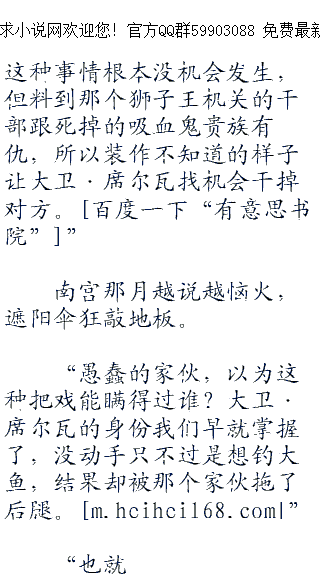 求小说网欢迎您！官方QQ群59903088 免费最新
这种事情根本没机会发生，
但料到那个狮子王机关的干
部跟死掉的吸血鬼贵族有
仇，所以装作不知道的样子
让大卫·席尔瓦找机会干掉
对方。[百度一下“有意思书
院”]”
南宫那月越说越恼火，
遮阳伞狂敲地板。
“愚蠢的家伙，以为这
种把戏能瞒得过谁？大卫·
席尔瓦的身份我们早就掌握
了，没动手只不过是想钓大
鱼，结果却被那个家伙拖了
后腿。[m.hcihci168.com|”
“也就